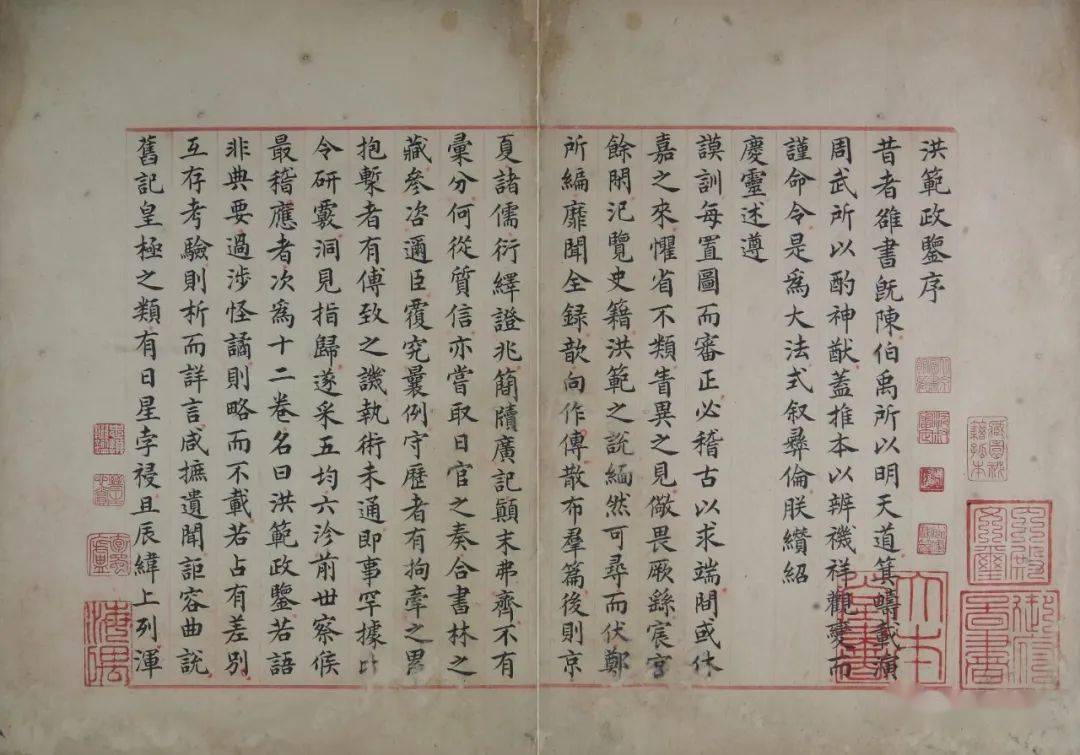 洪範政鑒序
昔者雒書旣陳伯禹所以明天道箕疇載演
周武所以酌神猷蓋推本以辨禨祥觀變而
謹命令是爲大法式叙彝倫朕纘紹
慶靈述遵
謨訓每置圖而審正必稽古以求端間或休
嘉之來懼省不類眚異之見儆畏厥繇宸宫
餘閒氾覽史籍洪範之說緬然可尋而伏鄭
所編靡聞全録歆向作傳散布羣篇後則京
夏諸儒衍繹證兆簡牘廣記顛末弗齊不有
彙分何從質信亦嘗取日官之奏合書林之
藏參咨邇臣覆究曩例守歷者有拘牽之累
抱槧者有傅致之譏執術未通即事罕據比
令研覈洞見指歸遂采五均六沴前世察候
最稽應者次爲十二卷名曰洪範政鑒若語
非典要過涉怪譎則略而不載若占有差別
互存考驗則析而詳言咸摭遺聞詎容曲說
舊記皇極之類有日星孛祲且辰緯上列渾